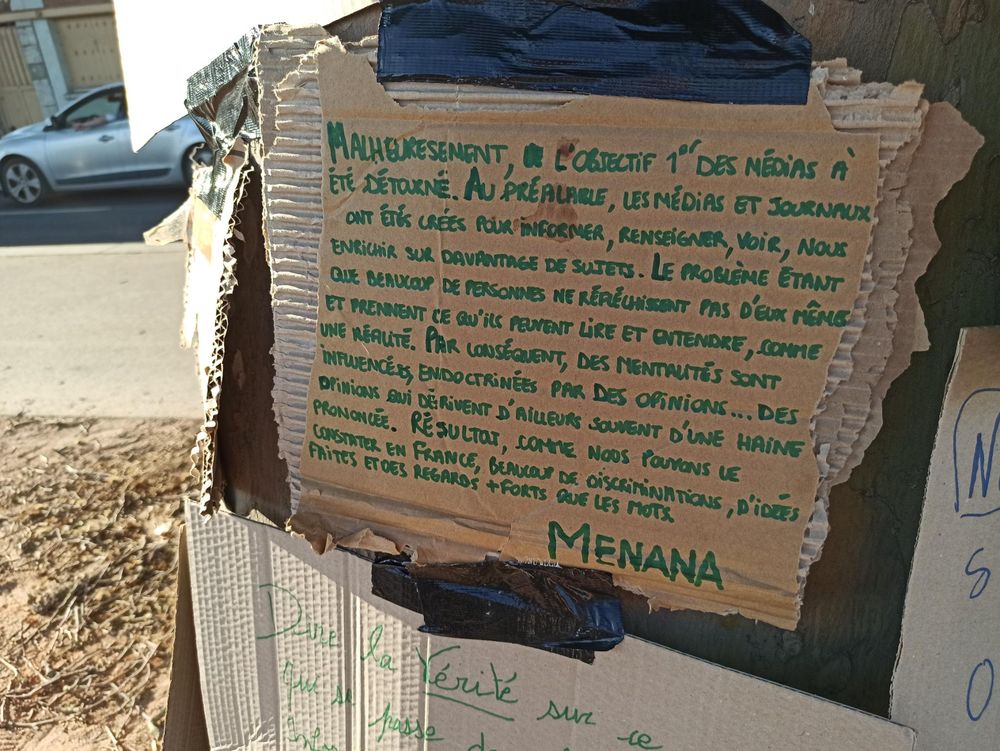 MALHEURESEMENT, L'OBJECTIF 1er DES MÉDIAS À
ÉTÉ DÉTOURNÉ. AU PRÉALABLE, LES MÉDIAS ET JOURNAUX
ONT ÉTÉS CRÉÉS POUR INFORMER, RENSEIGNER, VOIR, NOUS
ENRICHIR SUR DAVANTAGE DE SUJETS. LE PROBLÈME ÉTANT
QUE BEAUCOUP DE PERSONNES NE RÉFLÉCHISSENT PAS D'EUX MÊME
ET PRENNENT CE QU'ILS PEUVENT LIRE ET ENTENDRE, COMME
UNE RÉALITÉ. PAR CONSÉQUENT, DES MENTALITÉS SONT
INFLUENCÉES, ENDOCTRINÉES PAR DES OPINIONS... DES
OPINIONS QUI DÉRIVENT D'AILLEURS SOUVENT D'UNE HAINE
PRONONCÉE. RÉSULTAT, COMME NOUS POUVONS LE
CONSTATER EN FRANCE, BEAUCOUP DE DISCRIMINATIONS, D'IDÉES
FAITES ET DES REGARDS + FORTS QUE LES MOTS.
MENANA
Dire la Vérité sur ce
qui se passe
N
S
O